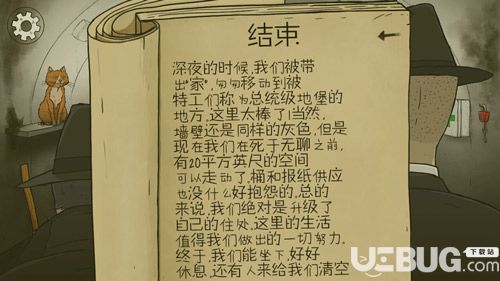 结束
深夜的时候,我们被带
出"家",匆匆移动到被
特工们称为总统级地堡的
地方,这里太棒了!当然,
墙壁还是同样的灰色,但是
现在我们在死于无聊之前,
有20平方英尺的空间
可以走动了,桶和报纸供应
也没什么好抱怨的,总的
来说,我们绝对是升级了
自己的住处,这里的生活
值得我们做出的一切努力,
终于,我们能坐下,好好
休息,还有人来给我们清空
UEBUG.com
下载站